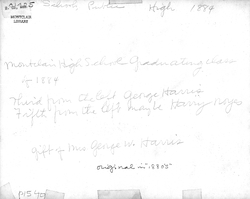 School, Public High 1884
MONTCLAIR
LIBRARY
Montclair High School Graduating class
of 1884
Third from the left George Harris
Fifth from the left maybe Harry
gift of Mrs George W Harris
original in "1880s"